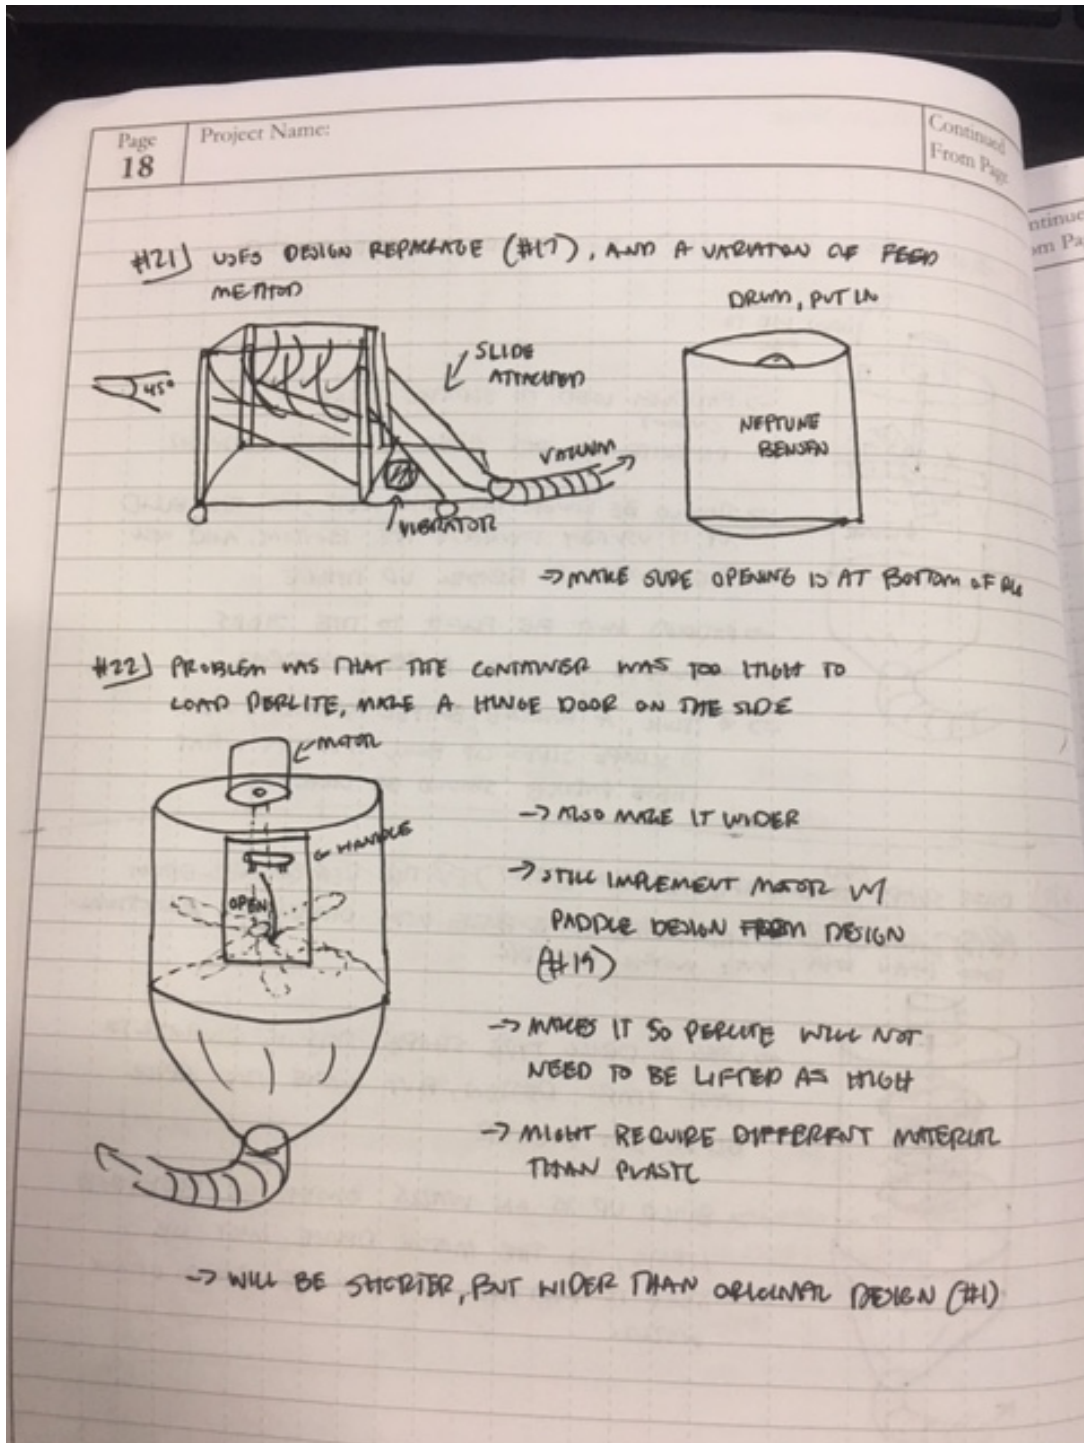 Page
18
Project Name:
Continued
From Page
ntinue
om Pa
#21) USES DESIGN REPACKAGE (#17), AND A VARIATON OF FEED
METHOD
DRUM, PUT IN
45°
SLIDE
ATTACHED
VACUUM
VIBRATOR
NEPTUNE
BENSEN
→ MAKE SURE OPENING IS AT BOTTOM OF
#22) PROBLEM WAS THAT THE CONTAINER WAS TOO HIGH TO
LOAD PERLITE, MAKE A HINGE DOOR ON THE SIDE
MOTOR
HANDLE
OPEN
→ ALSO MAKE IT WIDER
→ STILL IMPLEMENT MOTOR W/
PADDLE DESIGN FROM DESIGN
(#19)
→ MAKES IT SO PERLITE WILL NOT
NEED TO BE LIFTED AS HIGH
→ MIGHT REQUIRE DIFFERENT MATERIAL
THAN PLASTC
→ WILL BE SHORTER, BUT WIDER THAN ORIGINAL DESIGN (#1)